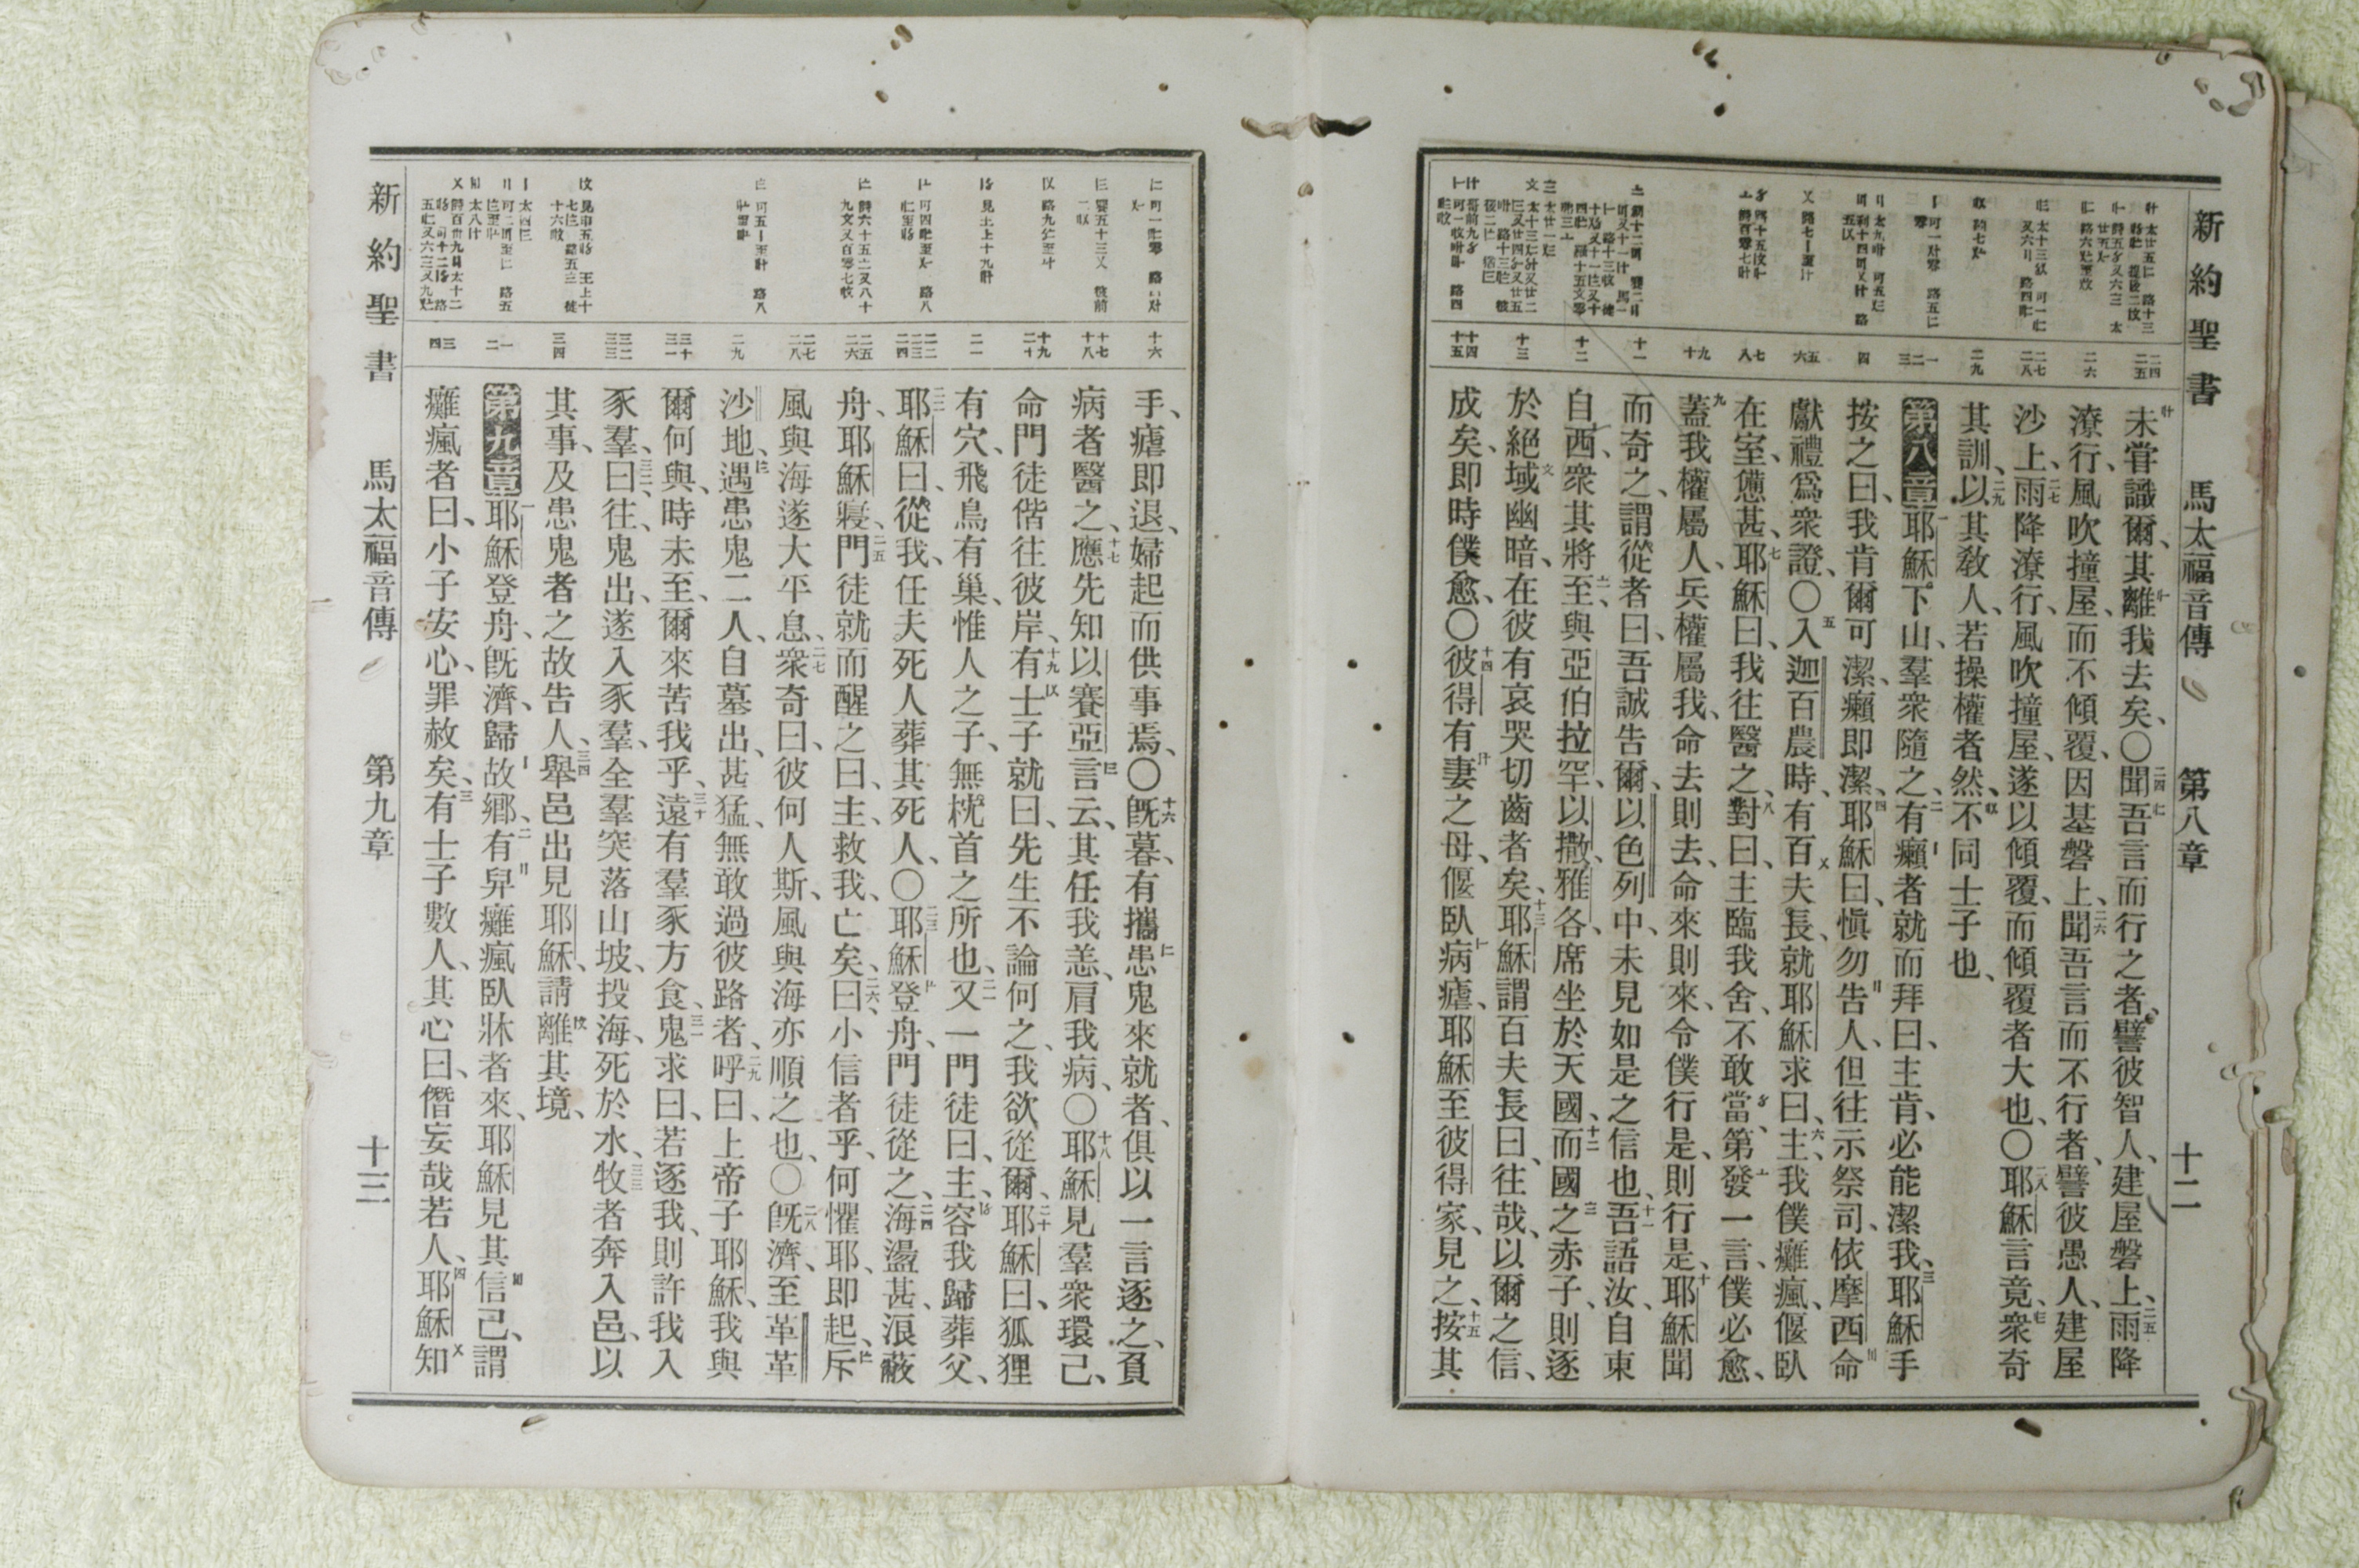 新約聖書 馬太福音傳 第八章 十二
未嘗識爾、其離我去矣、〇聞吾言而行之者、譬彼智人、建屋磐上、雨降
潦行、風吹撞屋、而不傾覆、因基磐上、聞吾言而不行者、譬彼愚人、建屋
沙上、雨降潦行、風吹撞屋、遂以傾覆、而傾覆者大也、〇耶穌言竟、衆奇
其訓、以其敎人、若操權者然、不同士子也、
第八章耶穌下山、羣衆隨之、有癩者就而拜曰、主肯、必能潔我、耶穌手
按之曰、我肯爾可潔、癩即潔、耶穌曰、愼勿告人、但往示祭司、依摩西命
獻禮爲衆證、〇入迦百農時、有百夫長、就耶穌求曰、主、我僕癱瘋、偃臥
在室、憊甚、耶穌曰、我往醫之、對曰、主臨我舍、不敢當、第發一言、僕必愈、
蓋我權屬人、兵權屬我、命去則去、命來則來、令僕行是、則行是、耶穌聞
而奇之、謂從者曰、吾誠告爾、以色列中、未見如是之信也、吾語汝、自東
自西、衆其將至、與亞伯拉罕、以撒、雅各、席坐於天國、而國之赤子、則逐
於絕域幽暗、在彼有哀哭切齒者矣、耶穌謂百夫長曰、往哉、以爾之信、
成矣、即時僕愈、〇彼得有妻之母、偃臥病瘧、耶穌至彼得家、見之、按其
手、瘧即退、婦起而供事焉、〇旣暮、有攜患鬼來就者、俱以一言逐之、負
病者醫之、應先知以賽亞言云、其任我恙、肩我病、〇耶穌見羣衆環己、
命門徒偕往彼岸、有士子就曰、先生不論何之、我欲從爾、耶穌曰、狐狸
有穴、飛鳥有巢、惟人之子、無枕首之所也、又一門徒曰、主、容我歸葬父、
耶穌曰、從我、任夫死人葬其死人、〇耶穌登舟、門徒從之、海盪甚、浪蔽
舟、耶穌寢、門徒就而醒之曰、主、救我、亡矣、曰、小信者乎、何懼耶、即起、斥
風與海遂大平息、衆奇曰、彼何人斯、風與海亦順之也、〇旣濟、至革革
沙地、遇患鬼二人、自墓出、甚猛、無敢過彼路者、呼曰、上帝子耶穌、我與
爾何與、時未至、爾來苦我乎、遠有羣豕方食、鬼求曰、若逐我、則許我入
豕羣、曰、往、鬼出、遂入豕羣、全羣突落山坡、投海、死於水、牧者奔入邑、以
其事、及患鬼者之故告人、舉邑出見耶穌、請離其境、
第九章耶穌登舟、旣濟、歸故鄕、有舁癱瘋臥牀者來、耶穌見其信己、謂
癱瘋者曰、小子安心、罪赦矣、有士子數人、其心曰、僭妄哉若人、耶穌知
新約聖書 馬太福音傳 第九章 十三